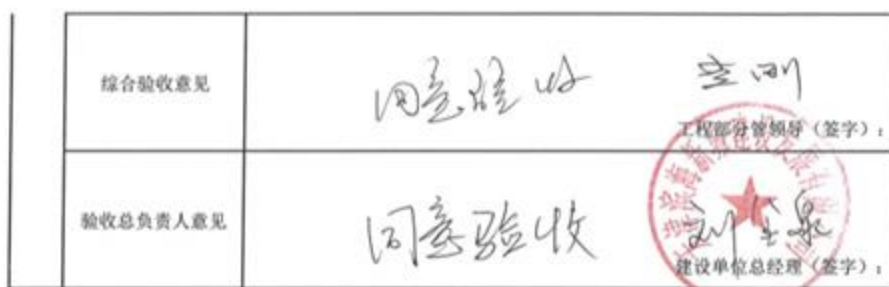 综合验收意见
同意验收
工程部分管领导（签字）：
验收总负责人意见
同意验收
建设单位总经理（签字）：